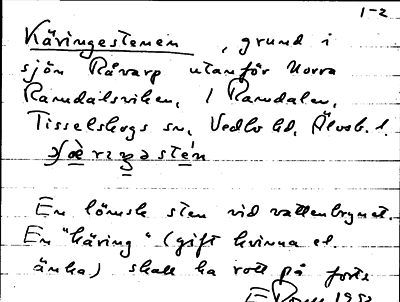 1-2
Käringestenen, grund i
sjön Råvarp utanför Norra
Ramdalsviken, i Ramdalen,
Tisselskogs sn, Vedbo hd, Älvsb. l.
En lömsk sten vid vattenbrynet.
En "käring" (gift kvinna el.
änka) skall ha rott på
195